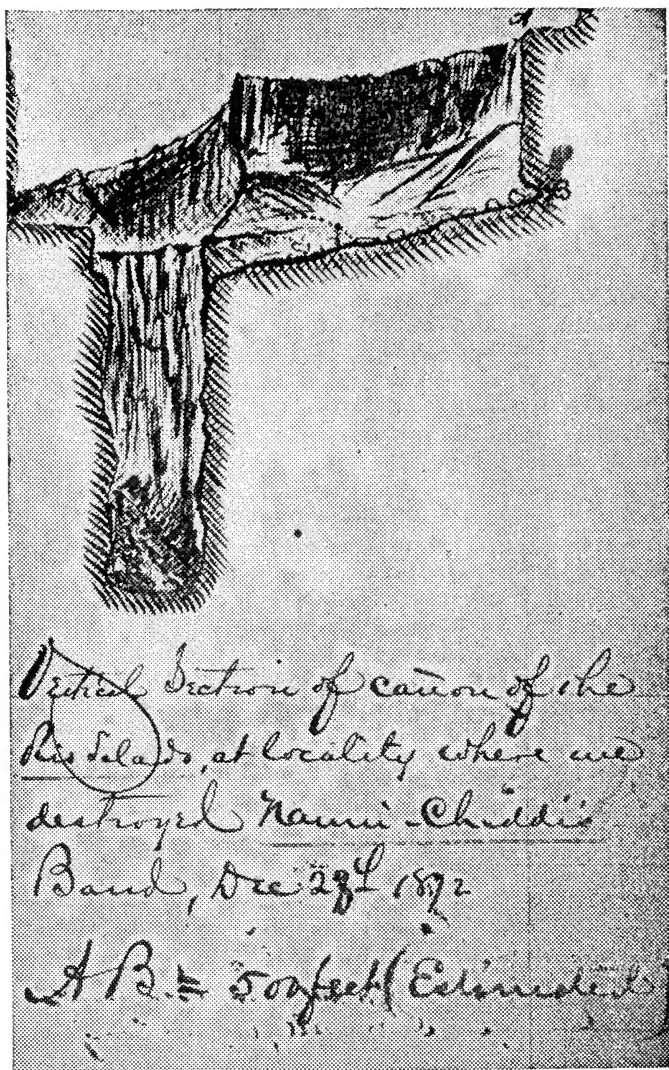 A
Vertical Section of cañon of the
Rio Salado, at locality where we
destroyed Nanni-Chiddi's
Band, Dec 28th 1872
AB = 500 feet (Estimated)